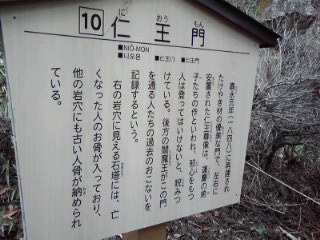 10 仁王門
におうもん
■NIO-MON
■니오몬 ■仁王门 ■仁王門
嘉永元年(一八四八)に再建され
たけやき材の優美な門で、左右に
安置された仁王尊像は、運慶の弟
子たちの作といわれ、邪心をもつ
人は登ってはいけないと、睨みつ
けている。後方の閻魔王がこの門
を通る人たちの過去のおこないを
記録するという。
右の岩穴に見える石塔には、亡
くなった人のお骨が入っており、
他の岩穴にも古い人骨が納められ
ている。